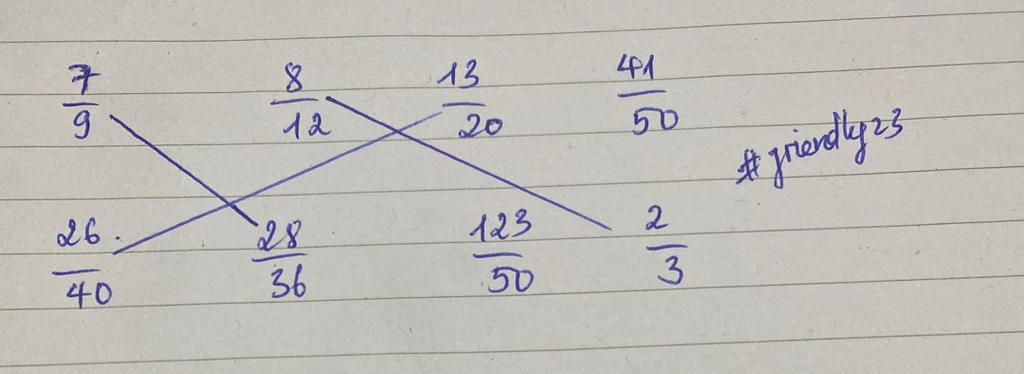 7/9 8/12 13/20 41/50
#friendly23
26/40 28/36 123/50 2/3